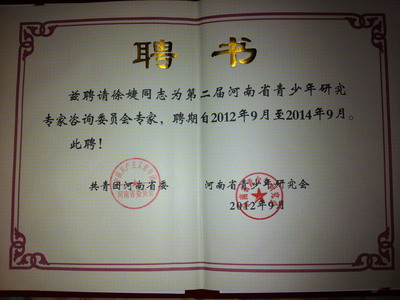 聘书
兹聘请徐婕同志为第二届河南省青少年研究
专家咨询委员会专家，聘期自2012年9月至2014年9月。
此聘！
共青团河南省委 河南省青少年研究会
2012年9月